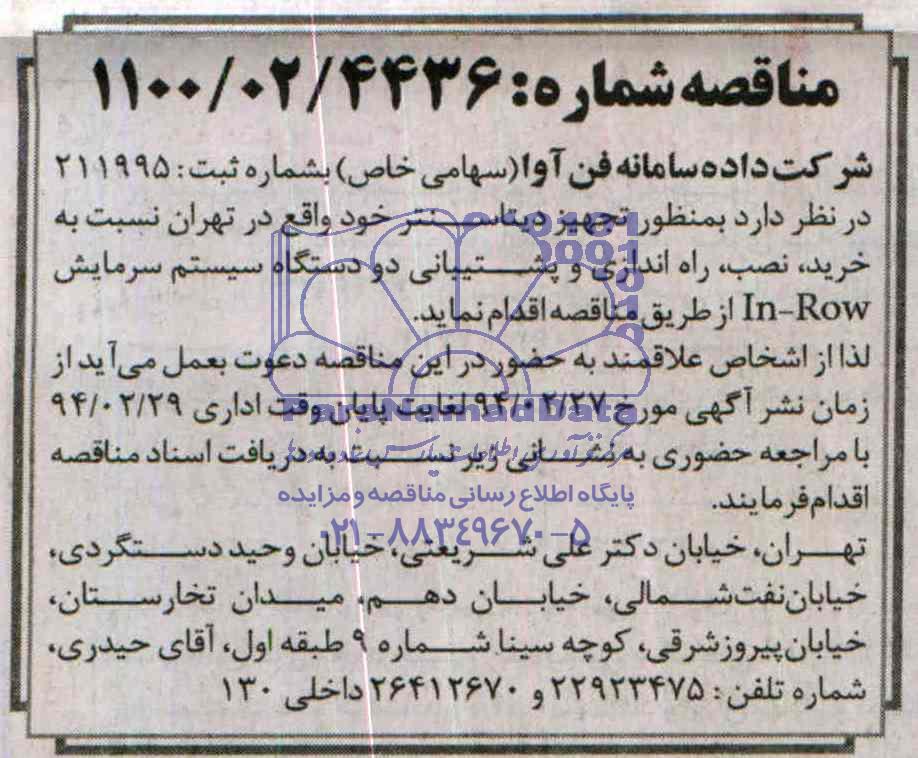 مناقصه شماره: ۱۱۰۰/۰۲/۴۴۳۶
شرکت داده سامانه فن آوا (سهامی خاص) بشماره ثبت: ۲۱۱۹۹۵
در نظر دارد بمنظور تجهیز دیتاسنتر خود واقع در تهران نسبت به
خرید، نصب، راه اندازی و پشتیبانی دو دستگاه سیستم سرمایش
In-Row از طریق مناقصه اقدام نماید.
لذا از اشخاص علاقمند به حضور در این مناقصه دعوت بعمل می‌آید از
زمان نشر آگهی مورخ ۹۴/۰۲/۲۷ لغایت پایان وقت اداری ۹۴/۰۲/۲۹
با مراجعه حضوری به نشانی زیر نسبت به دریافت اسناد مناقصه
اقدام فرمایند.
تهران، خیابان دکتر علی شریعتی، خیابان وحید دستگردی،
خیابان نفت شمالی، خیابان دهم، میدان تخارستان،
خیابان پیروز شرقی، کوچه سینا شماره ۹ طبقه اول، آقای حیدری،
شماره تلفن: ۲۲۹۲۳۴۷۵ و ۲۶۴۱۲۶۷۰ داخلی ۱۳۰
ParsNamadData
پایگاه اطلاع رسانی مناقصه و مزایده
۰۲۱-۸۸۳۴۹۶۷۰-۵